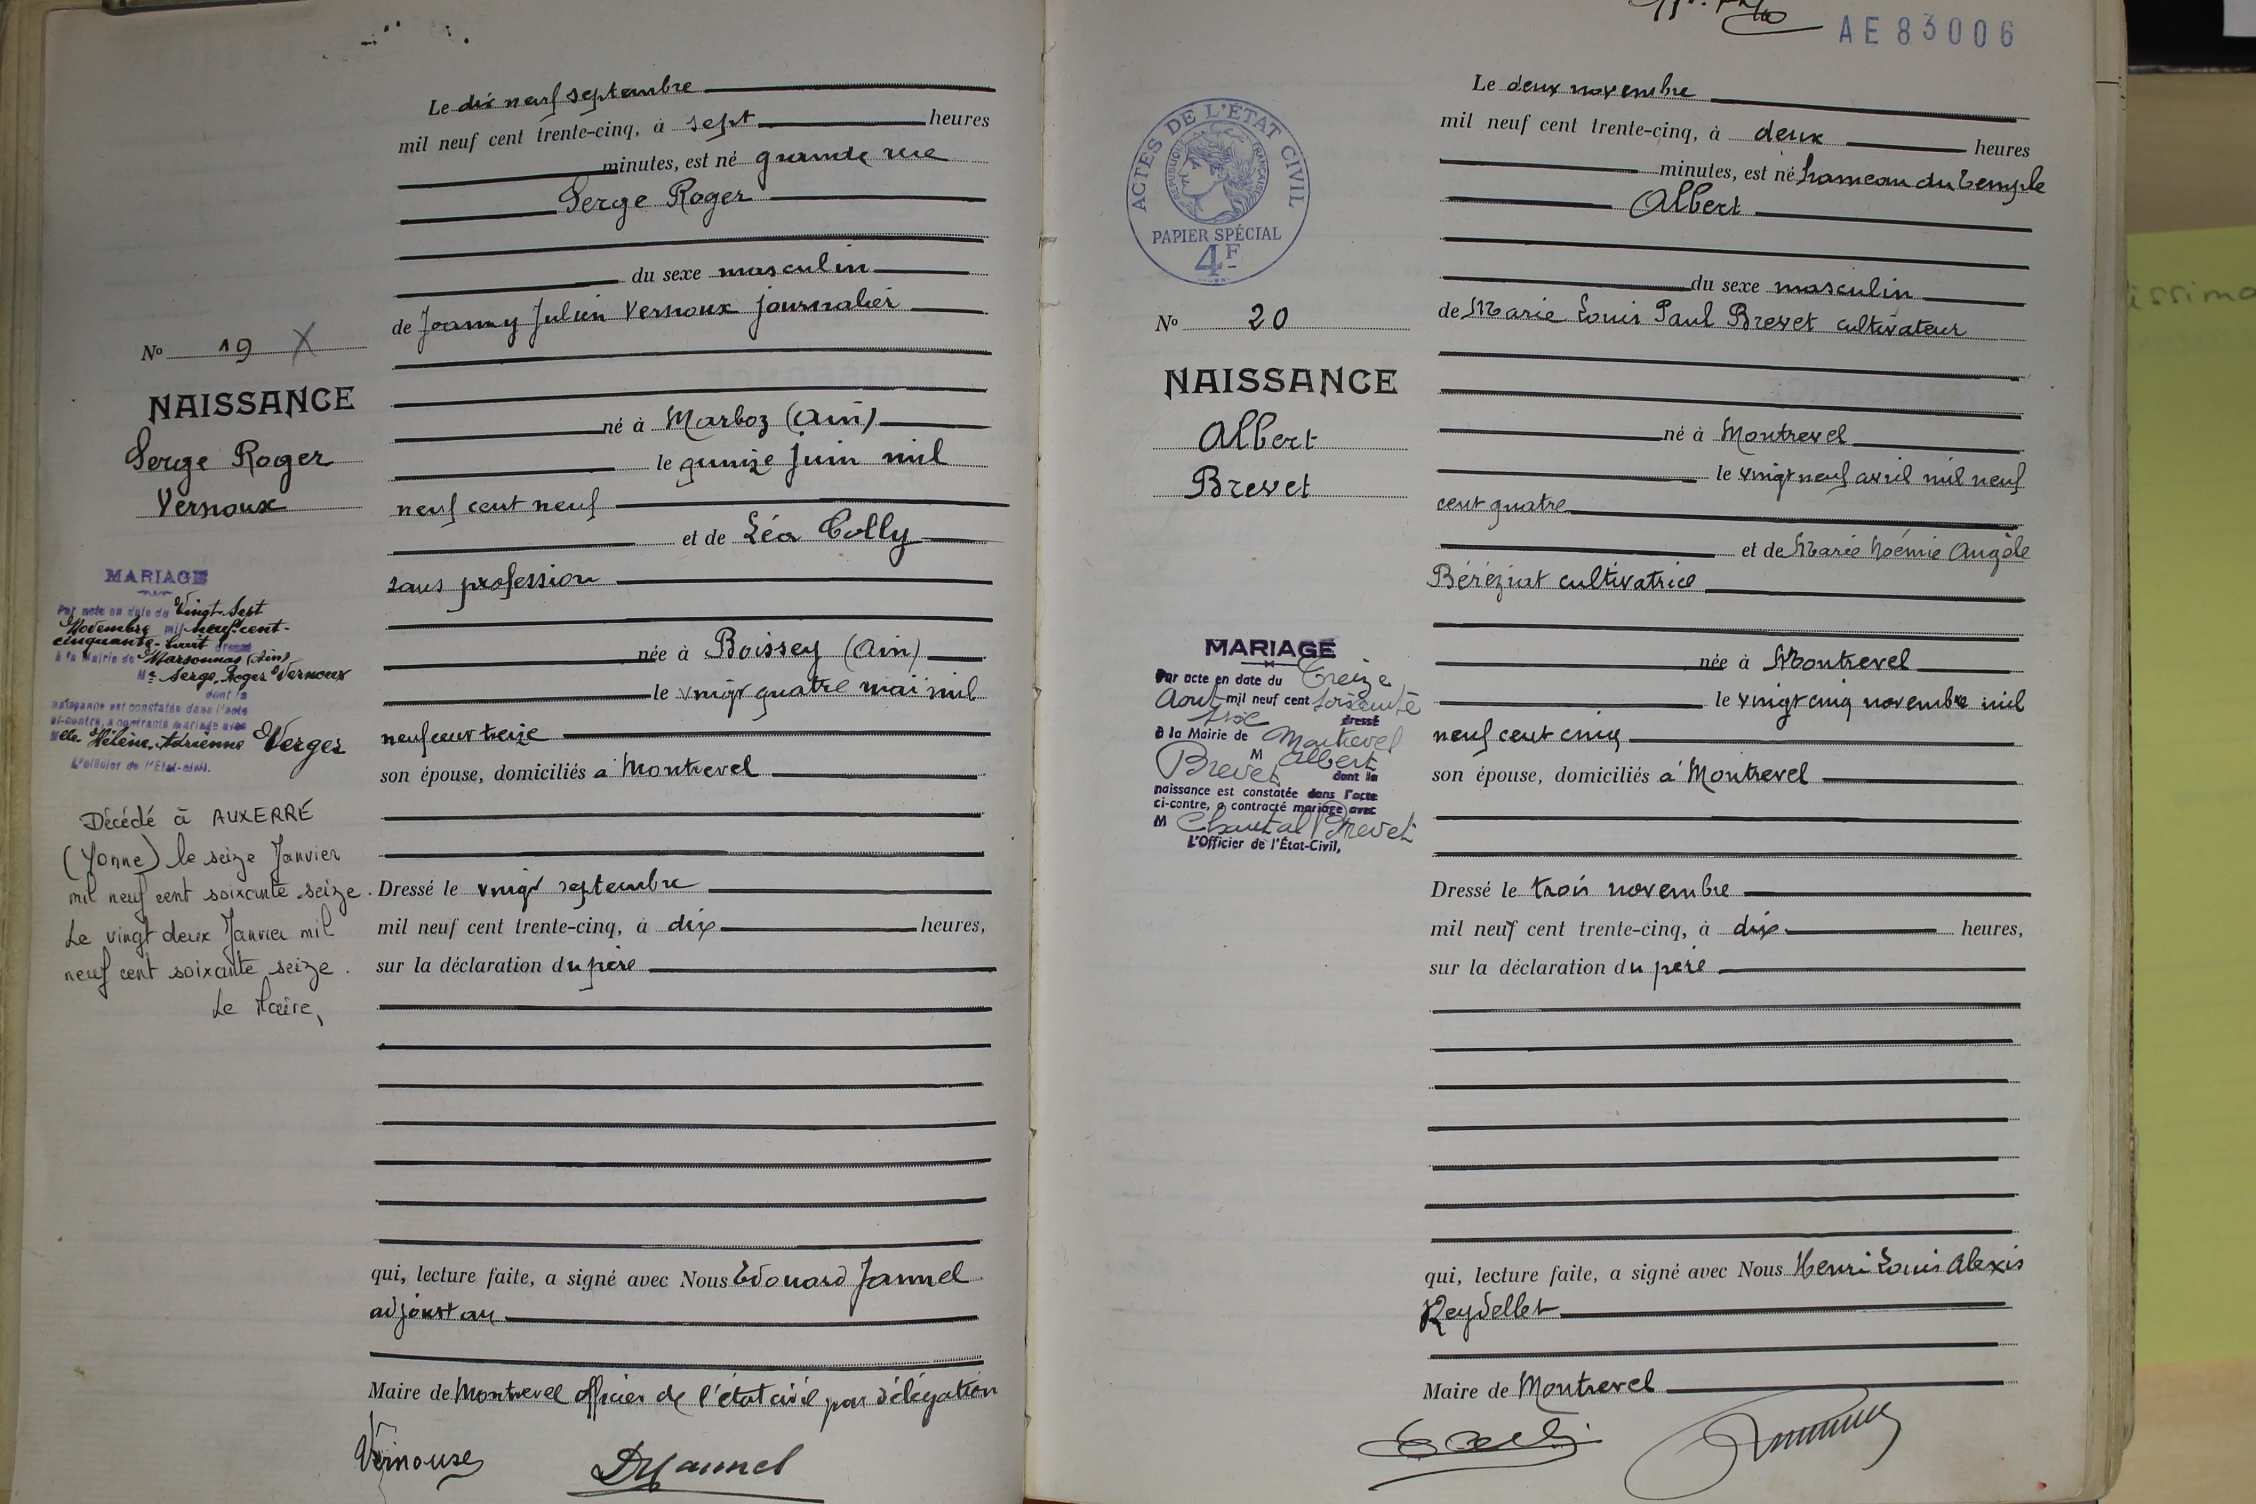 Le dix neuf septembre
mil neuf cent trente-cinq, à sept heures
minutes, est né grande rue
Serge Roger
du sexe masculin
de Joanny Julien Vernoux journalier
né à Marboz (Ain)
le quinze juin mil
neuf cent neuf
et de Léa Colly
sans profession
née à Boissey (Ain)
le vingt quatre mai mil
neuf cent treize
son épouse, domiciliés à Montrevel
Dressé le vingt septembre
mil neuf cent trente-cinq, à dix heures,
sur la déclaration du père
qui, lecture faite, a signé avec Nous Edouard Jannel
adjoint au
Maire de Montrevel officier de l'état civil par délégation
Vernoux
Nº 19 X
NAISSANCE
Serge Roger
Vernoux
MARIAGE
Par acte en date du Vingt-Sept
Novembre mil neuf-cent-
cinquante-huit dressé
à la Mairie de Marsonnas (Ain)
Mr Serge, Roger Vernoux
dont la
naissance est constatée dans l'acte
ci-contre, a contracté mariage avec
Melle Hélène, Adrienne Verger
L'officier de l'Etat-civil.
Décédé à AUXERRE
(Yonne) le seize Janvier
mil neuf cent soixante seize.
Le vingt deux Janvier mil
neuf cent soixante seize.
Le Maire,
AE83006
ACTES DE L'ÉTAT CIVIL
RÉPUBLIQUE FRANÇAISE
PAPIER SPÉCIAL
4F
Le deux novembre
mil neuf cent trente-cinq, à deux heures
minutes, est né hameau du Temple
Albert
du sexe masculin
de Marie Louis Paul Brevet cultivateur
né à Montrevel
le vingt neuf avril mil neuf
cent quatre
et de Marie Noémie Angèle
Béréziat cultivatrice
née à Montrevel
le vingt cinq novembre mil
neuf cent cinq
son épouse, domiciliés à Montrevel
Dressé le trois novembre
mil neuf cent trente-cinq, à dix heures,
sur la déclaration du père
qui, lecture faite, a signé avec Nous Henri Louis Alexis
Reydellet
Maire de Montrevel
Nº 20
NAISSANCE
Albert
Brevet
MARIAGE
Par acte en date du Treize
Aout mil neuf cent soixante
six dressé
à la Mairie de Montrevel
M Albert
Brevet dont la
naissance est constatée dans l'acte
ci-contre, a contracté mariage avec
M Chantal
L'Officier de l'État-Civil,